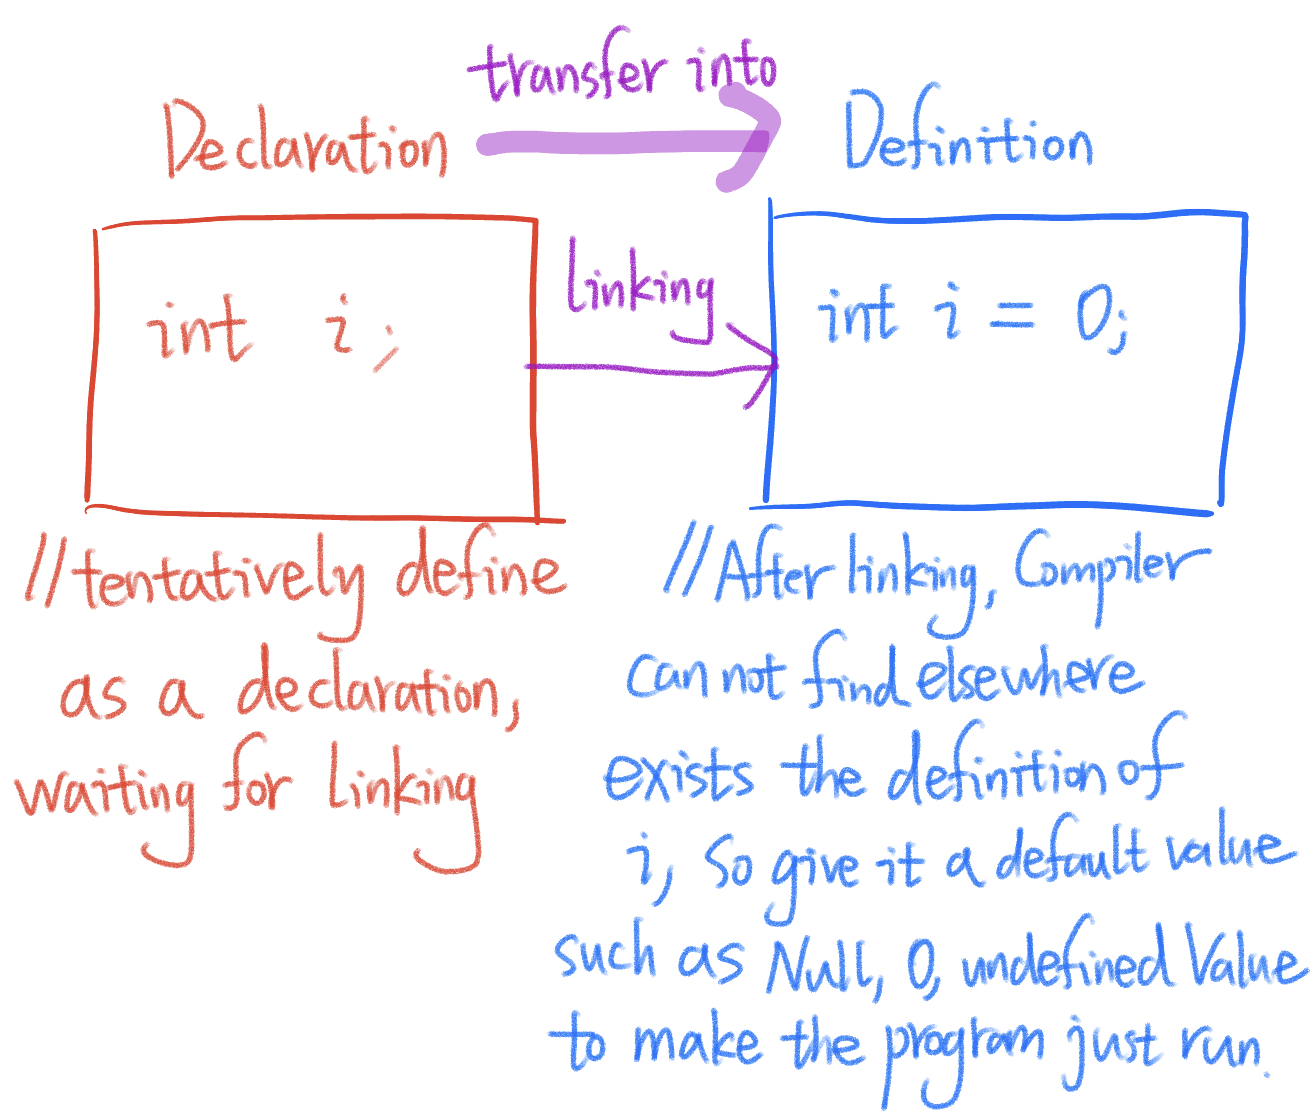 transfer into
Declaration
Definition
int i;
linking
int i = 0;
//tentatively define
as a declaration,
waiting for linking
//After linking, Compiler
can not find elsewhere
exists the definition of
i, so give it a default value
such as Null, 0, undefined Value
to make the program just run.